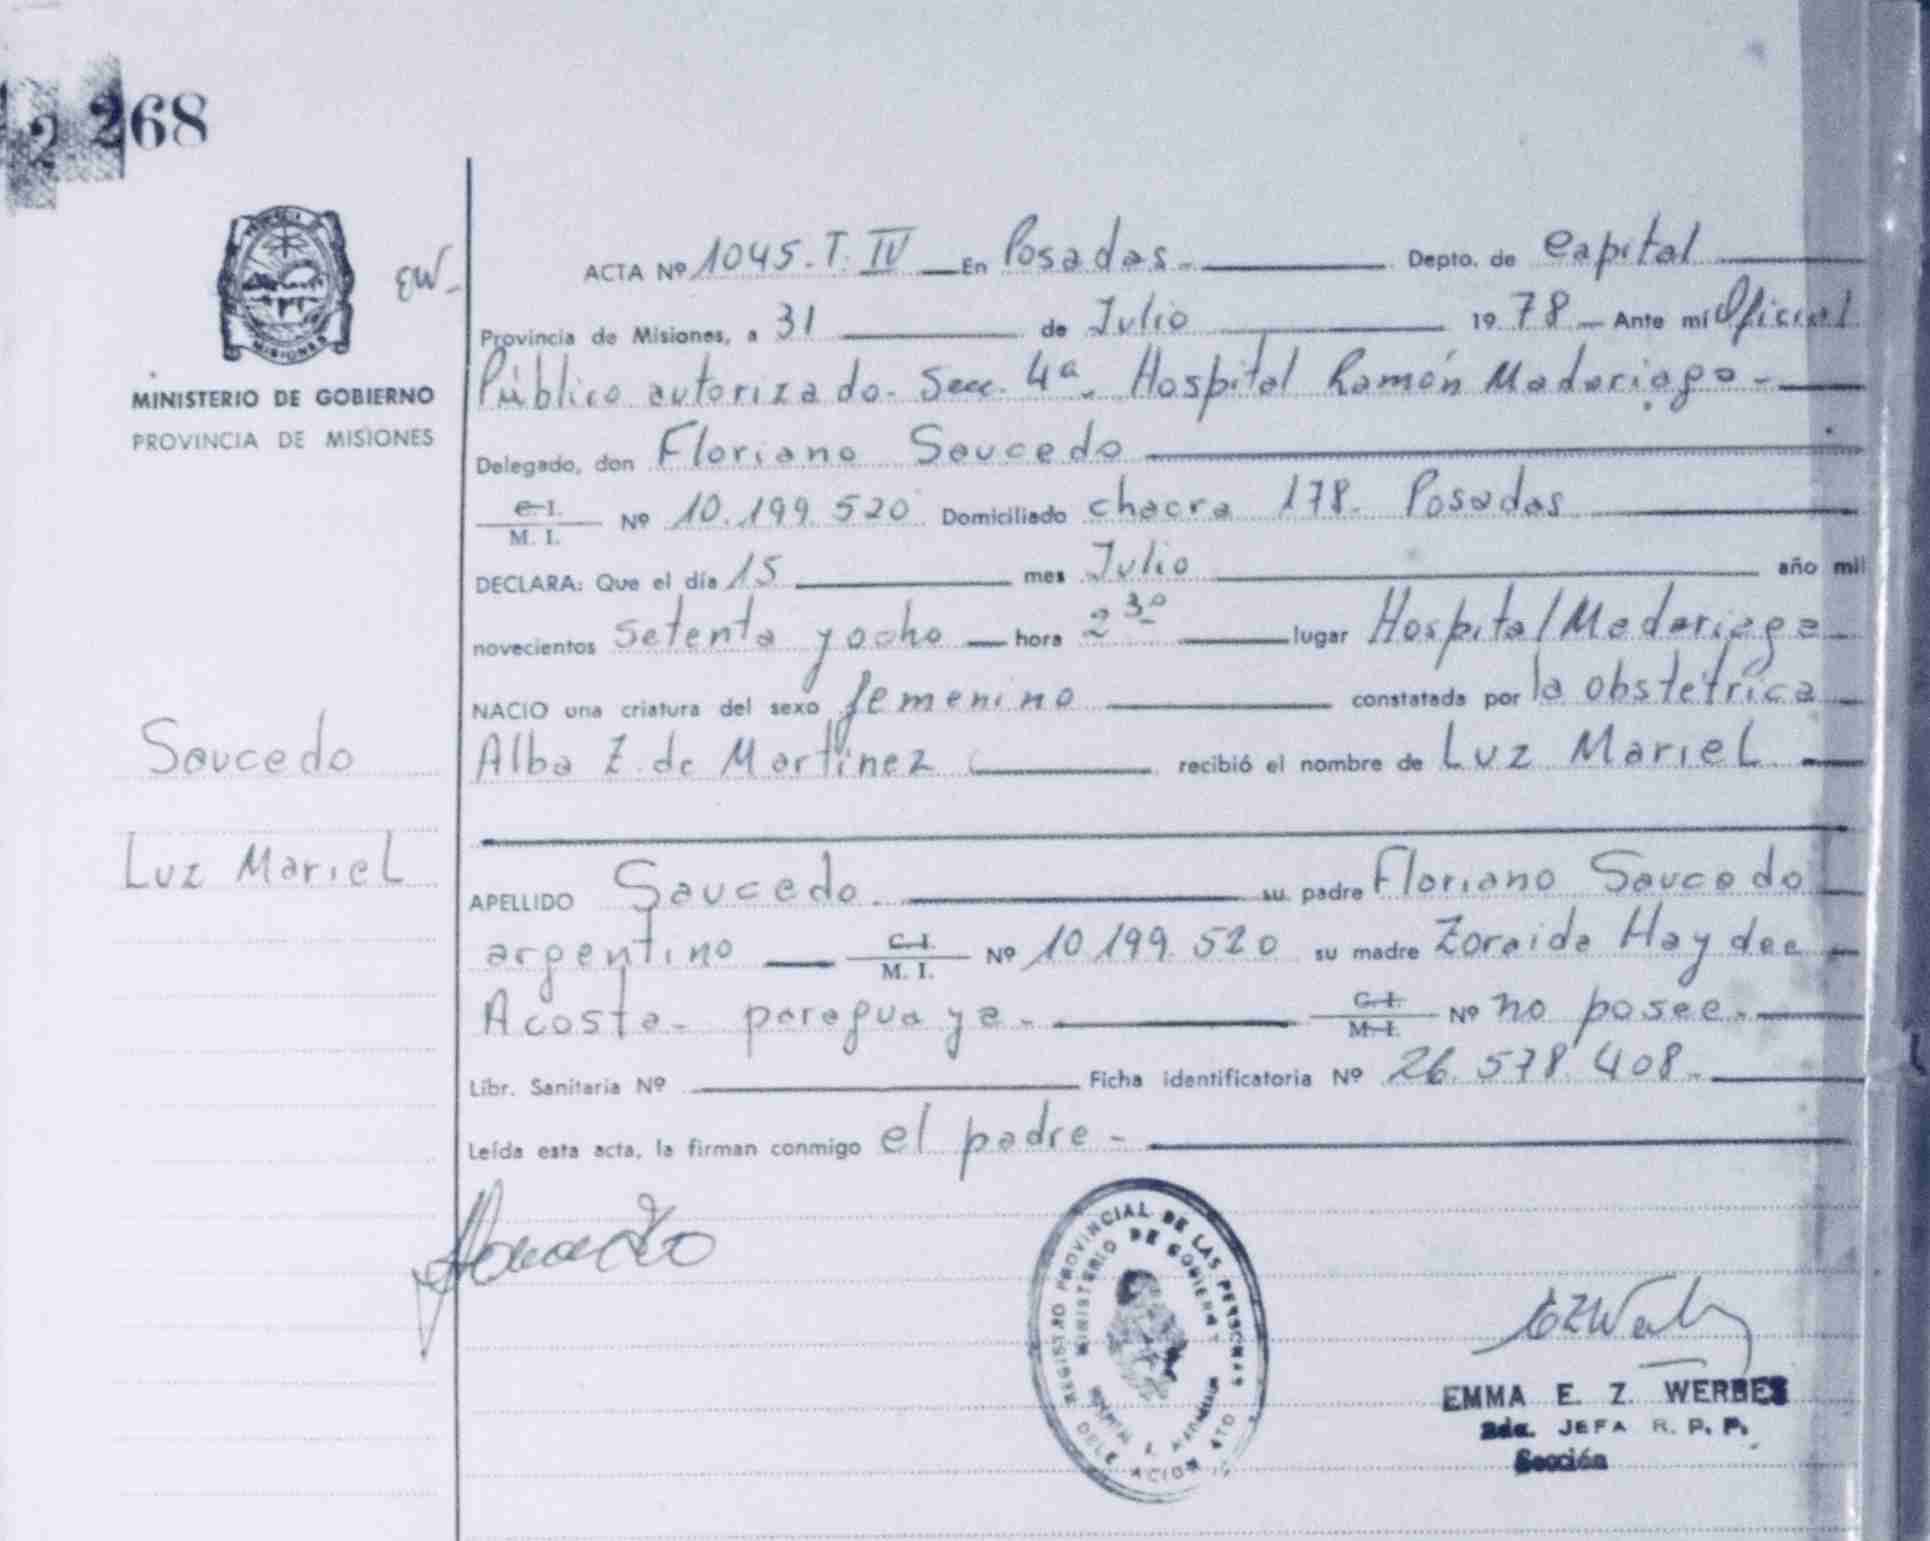 2 268
PROVINCIA
MISIONES
EW-
MINISTERIO DE GOBIERNO
PROVINCIA DE MISIONES
ACTA Nº 1045.T.IV En Posadas. Depto. de Capital
Provincia de Misiones, a 31 de Julio 1978 Ante mí Oficial
Público autorizado. Sec. 4ª. Hospital Ramón Madariaga-
Delegado, don Floriano Saucedo
C.I.
M. I. Nº 10.199.520 Domiciliado chacra 178. Posadas
DECLARA: Que el día 15 mes Julio año mil
novecientos setenta y ocho hora 2 30 lugar Hospital Madariaga
NACIO una criatura del sexo femenino constatada por la obstetrica
Saucedo
Alba Z. de Martinez recibió el nombre de Luz Mariel
Luz Mariel
APELLIDO Saucedo. su padre Floriano Saucedo
argentino C.I.
M. I. Nº 10.199.520 su madre Zoraida Haydee
Acosta- paraguaya- C.I.
M.I. Nº no posee.
Libr. Sanitaria Nº Ficha identificatoria Nº 26.578.408.
Leída esta acta, la firman conmigo el padre-
REGISTRO PROVINCIAL DE LAS PERSONAS
MINISTERIO DE GOBIERNO
EZWerb
EMMA E. Z. WERBES
2da. JEFA R. P. P.
Sección